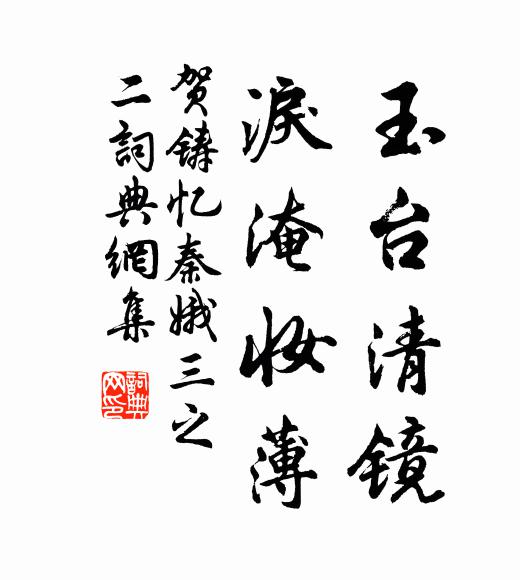 玉台清镜
淚淹妆薄
贺铸忆秦娥三之
二詞典網集
詞典
网印